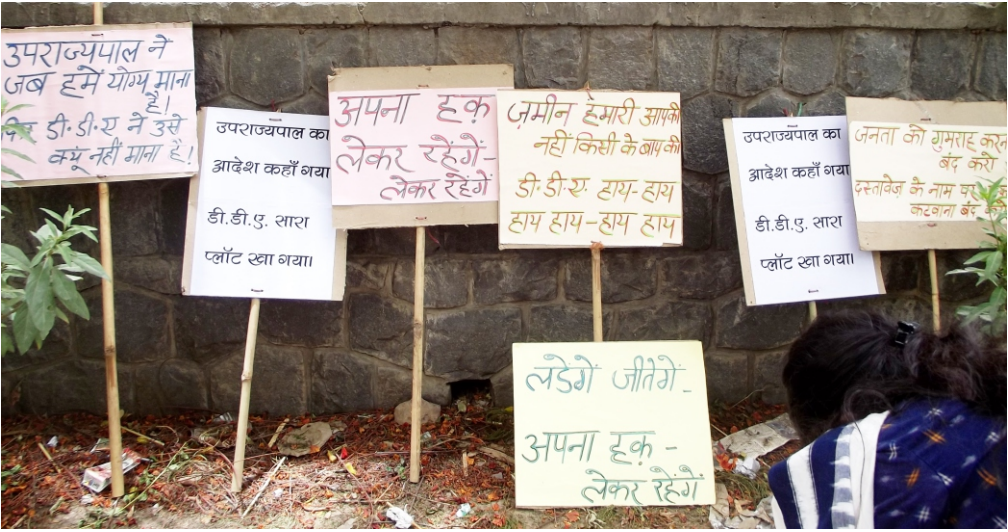 उपराज्यपाल ने
जब हमें योग्य माना
है।
फिर डी.डी.ए ने उसे
क्यूं नहीं माना है!
उपराज्यपाल का
आदेश कहाँ गया
डी.डी.ए. सारा
प्लॉट खा गया।
अपना हक़
लेकर रहेंगें-
लेकर रहेंगें
ज़मीन हमारी आपकी
नहीं किसी के बाप की
डी.डी.ए. हाय-हाय
हाय हाय-हाय हाय
उपराज्यपाल का
आदेश कहाँ गया
डी.डी.ए. सारा
प्लॉट खा गया।
जनता को गुमराह करन
बंद करो
दस्तावेज़ के नाम पर
कटवाना बंद
लडेगें जीतेगें-
अपना हक़ -
लेकर रहेंगें